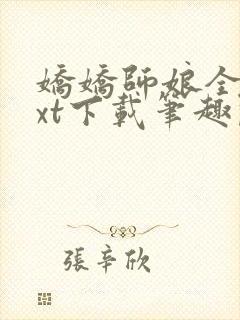 嬌嬌師娘全
xt下載筆趣
張辛欣